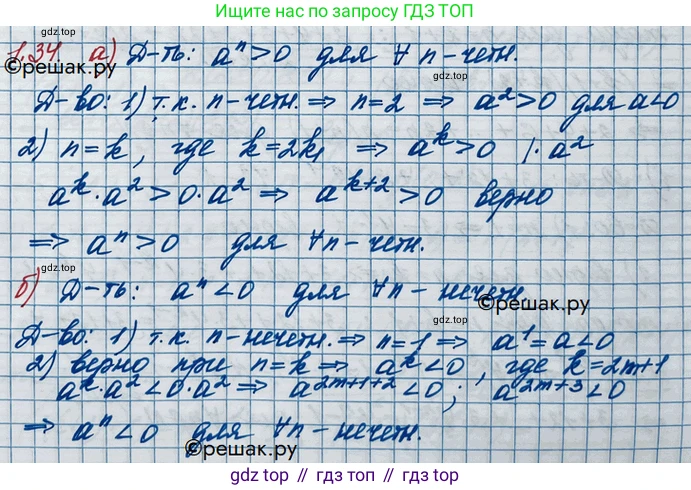 Ищите нас по запросу ГДЗ ТОП
1.34. а) Д-ть: aⁿ>0 для ∀ n-четн.
©решак.ру
gdz.top
Д-во: 1) т.к. n-четн. ⇒ n=2 ⇒ a²>0 для a<0
2) n=k, где k=2k₁ ⇒ aᵏ>0 |·a²
gdz.top
aᵏ·a²>0·a² ⇒ aᵏ⁺²>0 верно
⇒ aⁿ>0 для ∀n-четн.
gdz.top
б) Д-ть: aⁿ<0 для ∀n-нечетн
©решак.ру
Д-во: 1) т.к. n-нечетн. ⇒ n=1 ⇒ a¹=a<0
gdz.top
2) верно при n=k ⇒ aᵏ<0, где k=2m+1
aᵏ·a²<0·a² ⇒ a²ᵐ⁺¹⁺²<0; a²ᵐ⁺³<0
⇒ aⁿ<0 для ∀n-нечетн.
gdz.top
©решак.ру
gdz top // гдз топ // gdz top